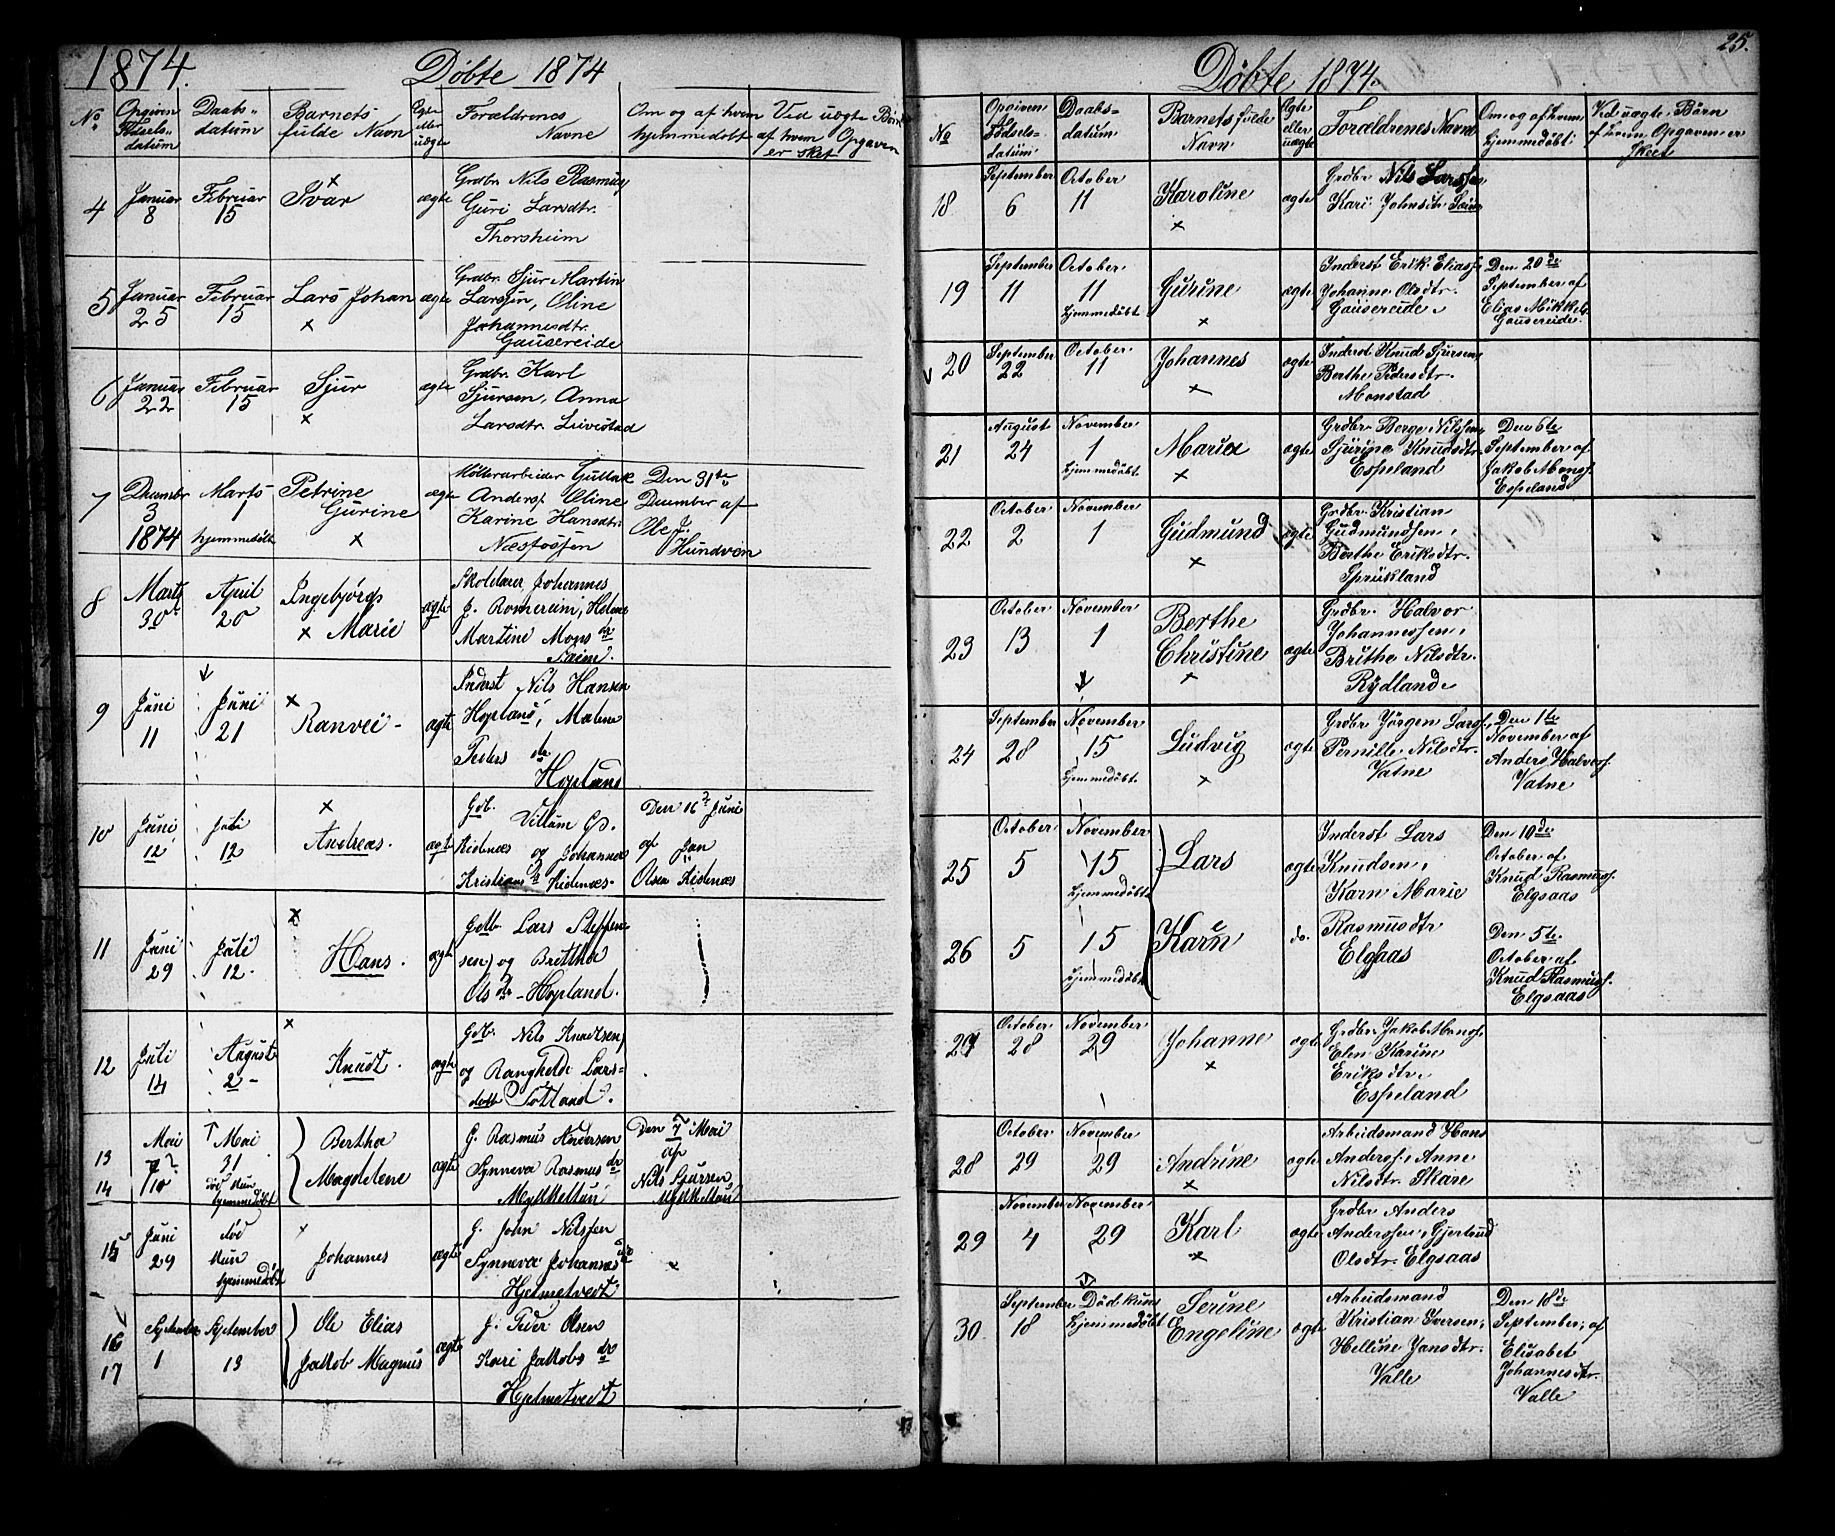 1874.
Döbte 1874
No
Opgiven
Födsels-
datum
Daabs-
datum
Barnets
fulde Navn
Egte
eller
uægte
Forældrenes
Navne
Om og af hvem
hjemmedöbt
Ved uægte Börn
af hvem Opgaven
er sket
4
Januar
8
Februar
15
Ivar
ægte
Grdbr. Nils Rasmus
Guri Larsdtr.
Thorsheim
5
Januar
25
Februar
15
Lars Johan
ægte
Grdbr. Sjur Martin
Larssen, Oline
Johannesdtr.
Gausereide
6
Januar
22
Februar
15
Sjur
ægte
Grdbr. Karl
Sjursen, Anna
Larsdtr.
7
Decembr
3
1874
Marts
1
hjemmedöbt
Petrine
Gurine
ægte
Möllerarbeider Gullak
Andersf. Oline
Karine Hansdtr.
Næsfossen
Den 31te
December af
Ole J.
Hundven
8
Marts
30
April
20
Ingebjörg
Marie
ægte
Skolelærer Johannes
J. Romereim, Helene
Martine Mons dr
Saim.
9
Juni
11
Juni
21
Ranvei -
ægte
Inderst Nils Hansen
Hopland, Malene
Peders dtr
Hopland
10
Juni
12
Juli
12
Andreas.
ægte
Gdb. Villum
Eidenæs og Johanna
Kristians dr Eidenæs.
Den 16 Juni
af Jan
Olsen Eidenæs
11
Juni
29
Juli
12.
Hans.
ægte
Gdb. Lars Steffen-
sen og Brithe
Ols dr - Hopland.
12
Juli
14
August
2 -
Knudt.
ægte
Gdb. Nils Knudsen
og Ranghilde Lars-
dott
13
14
Mai
7
10
Mai
31
död kun
hjemmedöbt
Bertha
Magdelene
ægte
G. Rasmus Andersen
Synneva Rasmus dr
Myklletun
Den 7 Mai
af
Nils Sjursen
Mykletun
15
Juni
29
död
kun
hjemmedöbt
Johannes
ægte
G. John Nilssen
Synneva Johannes
Hjelmetvedt
16
17
September
1
September
13
Ole Elias
Jakob Magnus
ægte
G. Peder Olsen
Kari Jakobs dr
Hjelmetvedt
25.
Döbte 1874.
No
Opgiven
Födsels-
datum
Daabs-
datum
Barnets fulde
Navn
Egte
eller
uægte
Forældrenes Navne
Om og af hvem
hjemmedöbt
Ved uægte Börn
af hvem Opgaven er
skeet
18
September
6
October
11
Karoline
ægte
Grdbr Nils Larssen
Kari Johnsdtr. Seim
19
September
11
October
11
hjemmedöbt
Gurine
ægte
Inderst Erik Eliasf.
Johanne Olsdtr.
Gausereide.
Den 20de
September af
Elias Mikkels.
Gausereide.
20
September
22
October
11
Johannes
ægte
Inderst Knud Sjursen
Berthe Pedersdtr.
Monstad
21
August
24
November
1
hjemmedöbt
Maria
ægte
Grdbr. Berge Nilssen
Sjurine Knudsdtr.
Espeland
Den 6te
September af
Jakob Monsf.
Espeland
22
October
2
November
1
Gudmund
ægte
Grdbr. Kristian
Gudmundsen,
Berthe Eriksdtr.
Sprukland
23
October
13
November
1
Berthe
Christine
ægte
Grdbr. Halvor
Johannessen,
Brithe Nilsdtr.
Rydland
24
September
28
November
15
hjemmedöbt
Ludvig
ægte
Grdbr Jörgen Larsf.,
Pernille Nilsdtr.
Vatne
Den 1te
November af
Anders Halvorsf.
Vatne
25
October
5
November
15
hjemmedöbt
Lars
ægte
Inderst Lars
Knudsen,
Karn Marie
Den 10de
October af
Knud Rasmusf.
Elgsaas
26
5
15
hjemmedöbt
Karn
do.
Rasmusdtr
Elgsaas
Den 5te
October af
Knud Rasmusf.
Elgsaas
27
October
28
November
29
Johanne
ægte
Grdbr. Jakob Monsf.
Elen Karine
Eriksdtr.
Espeland
28
October
29
November
29
Andrine
ægte
Arbeidsmand Hans
Andersf., Anne
Nilsdtr. Skare
29
November
4
November
29
Karl
ægte
Grdbr Anders
Anderssen, Gjertrud
Olsdtr. Elgsaas
30
September
18
Död kun
hjemmedöbt
Serine
Engeline
ægte
Arbeidsmand
Kristian Iversen,
Helline Jansdtr.
Valle
Den 18de
September, af
Elisabet
Johannesdtr.
Valle